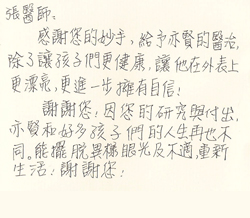 張醫師:
感謝您的妙手，給予亦賢的醫治，
除了讓孩子們更健康，讓他在外表上
更漂亮，更進一步擁有自信!
謝謝您!因您的研究與付出，
亦賢和好多孩子們的人生再也不
同。能擺脫異樣眼光及不適，重新
生活!謝謝您!